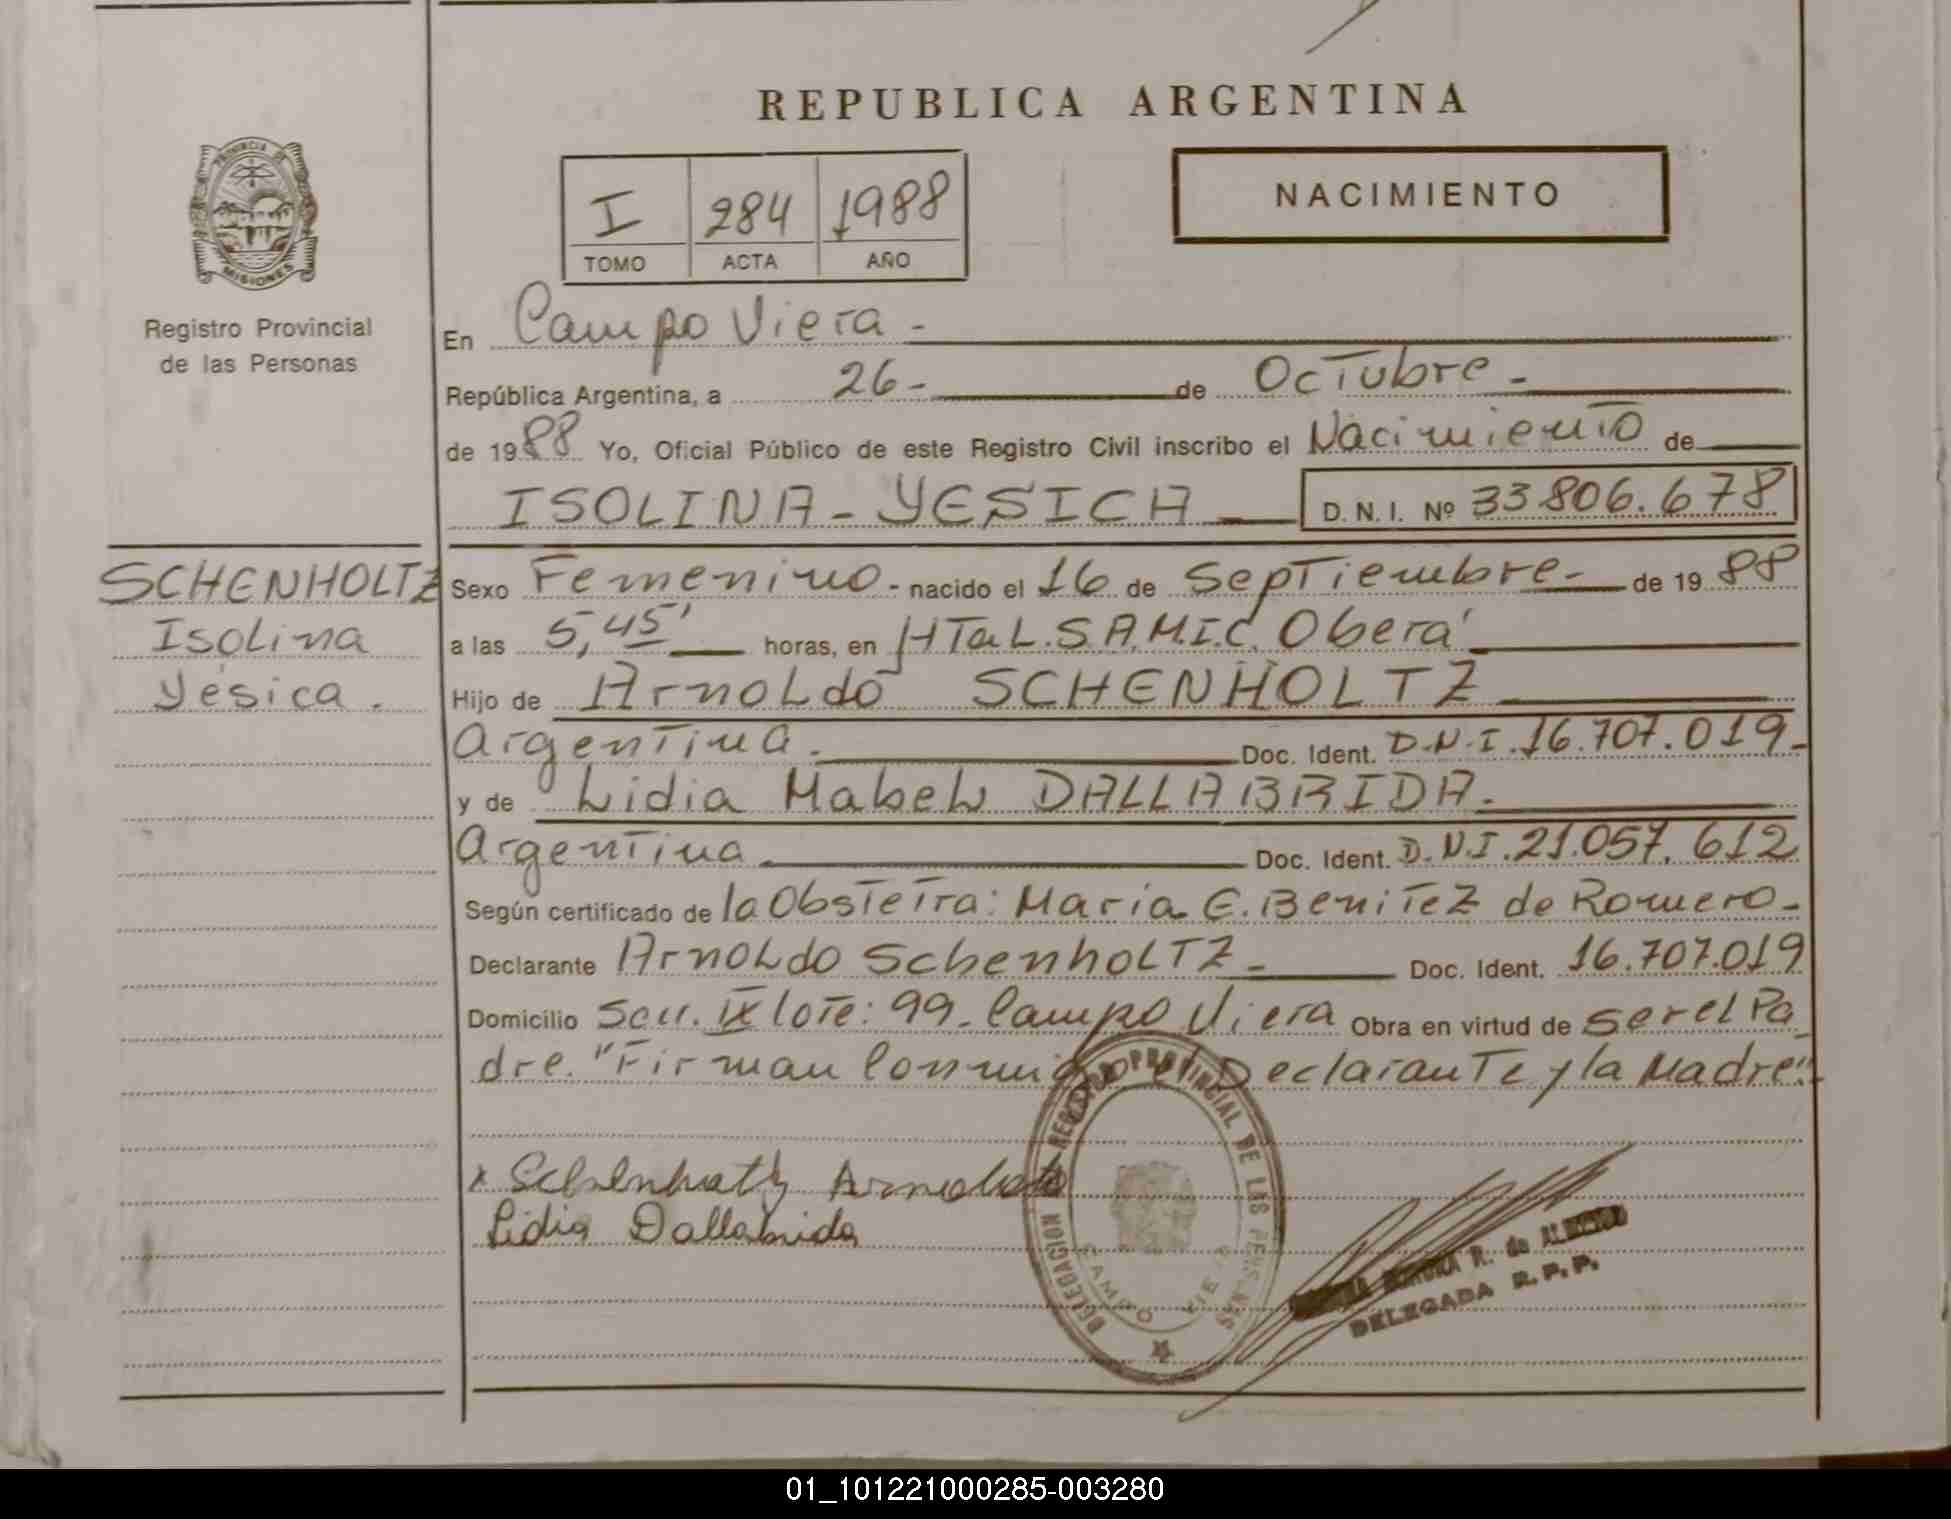 REPUBLICA ARGENTINA
I 284 1988
TOMO ACTA AÑO
NACIMIENTO
PROVINCIA DE MISIONES
Registro Provincial
de las Personas
SCHENHOLTZ
Isolina
Yésica.
En Campo Viera -
República Argentina, a 26 - de Octubre -
de 1988 Yo, Oficial Público de este Registro Civil inscribo el Nacimiento de
ISOLINA - YESICA D. N. I. Nº 33.806.678
Sexo Femenino - nacido el 16 de Septiembre - de 1988
a las 5,45' horas, en HTaL. S.A.M.I.C. Oberá
Hijo de Arnoldo SCHENHOLTZ
Argentina. Doc. Ident. D.N.I. 16.707.019 -
y de Lidia Mabel DALLABRIDA.
Argentina Doc. Ident. D.N.I. 21.057.612
Según certificado de la Obstetra: María E. Benitez de Romero -
Declarante Arnoldo Schenholtz - Doc. Ident. 16.707.019
Domicilio IX lote: 99 - Campo Viera Obra en virtud de ser el Pa
dre. "Firman Conmigo el Declarante y la Madre".
x Schenholtz Arnoldo
Lidia Dallabrida
DELEGACION REGISTRO PROVINCIAL DE LAS PERSONAS
CAMPO VIERA
R. de
DELEGADA R. P. P.
01_101221000285-003280